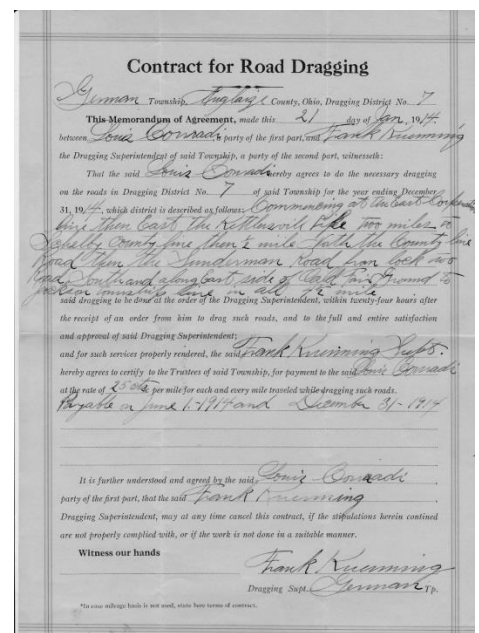 Contract for Road Dragging
German Township, Auglaize County, Ohio, Dragging District No. 7
This Memorandum of Agreement, made this 21 day of Jan, 1914
between Louis Conradi party of the first part, and Frank Kuenning
the Dragging Superintendent of said Township, a party of the second part, witnesseth:
That the said Louis Conradi hereby agrees to do the necessary dragging
on the roads in Dragging District No. 7 of said Township for the year ending December
31, 1914, which district is described as follows: Commencing at the East Corporation
line then East, the Kettlersville Pike two miles to
Shelby County line then ½ mile the County line
Road then the Sunderman Road from lock two
Road South and along East side of Fair Ground to
line in all mile
said dragging to be done at the order of the Dragging Superintendent, within twenty-four hours after
the receipt of an order from him to drag such roads, and to the full and entire satisfaction
and approval of said Dragging Superintendent;
and for such services properly rendered, the said Frank Kuenning Supt.
hereby agrees to certify to the Trustees of said Township, for payment to the said Louis Conradi
at the rate of 25 cts per mile for each and every mile traveled while dragging such roads.
Payable on June 1.-1914 and December 31-1914
It is further understood and agreed by the said Louis Conradi
party of the first part, that the said Frank Kuenning
Dragging Superintendent, may at any time cancel this contract, if the stipulations herein contined
are not properly complied with, or if the work is not done in a suitable manner.
Witness our hands
Frank Kuenning
Dragging Supt. German Tp.
*In case mileage basis is not used, state here terms of contract.